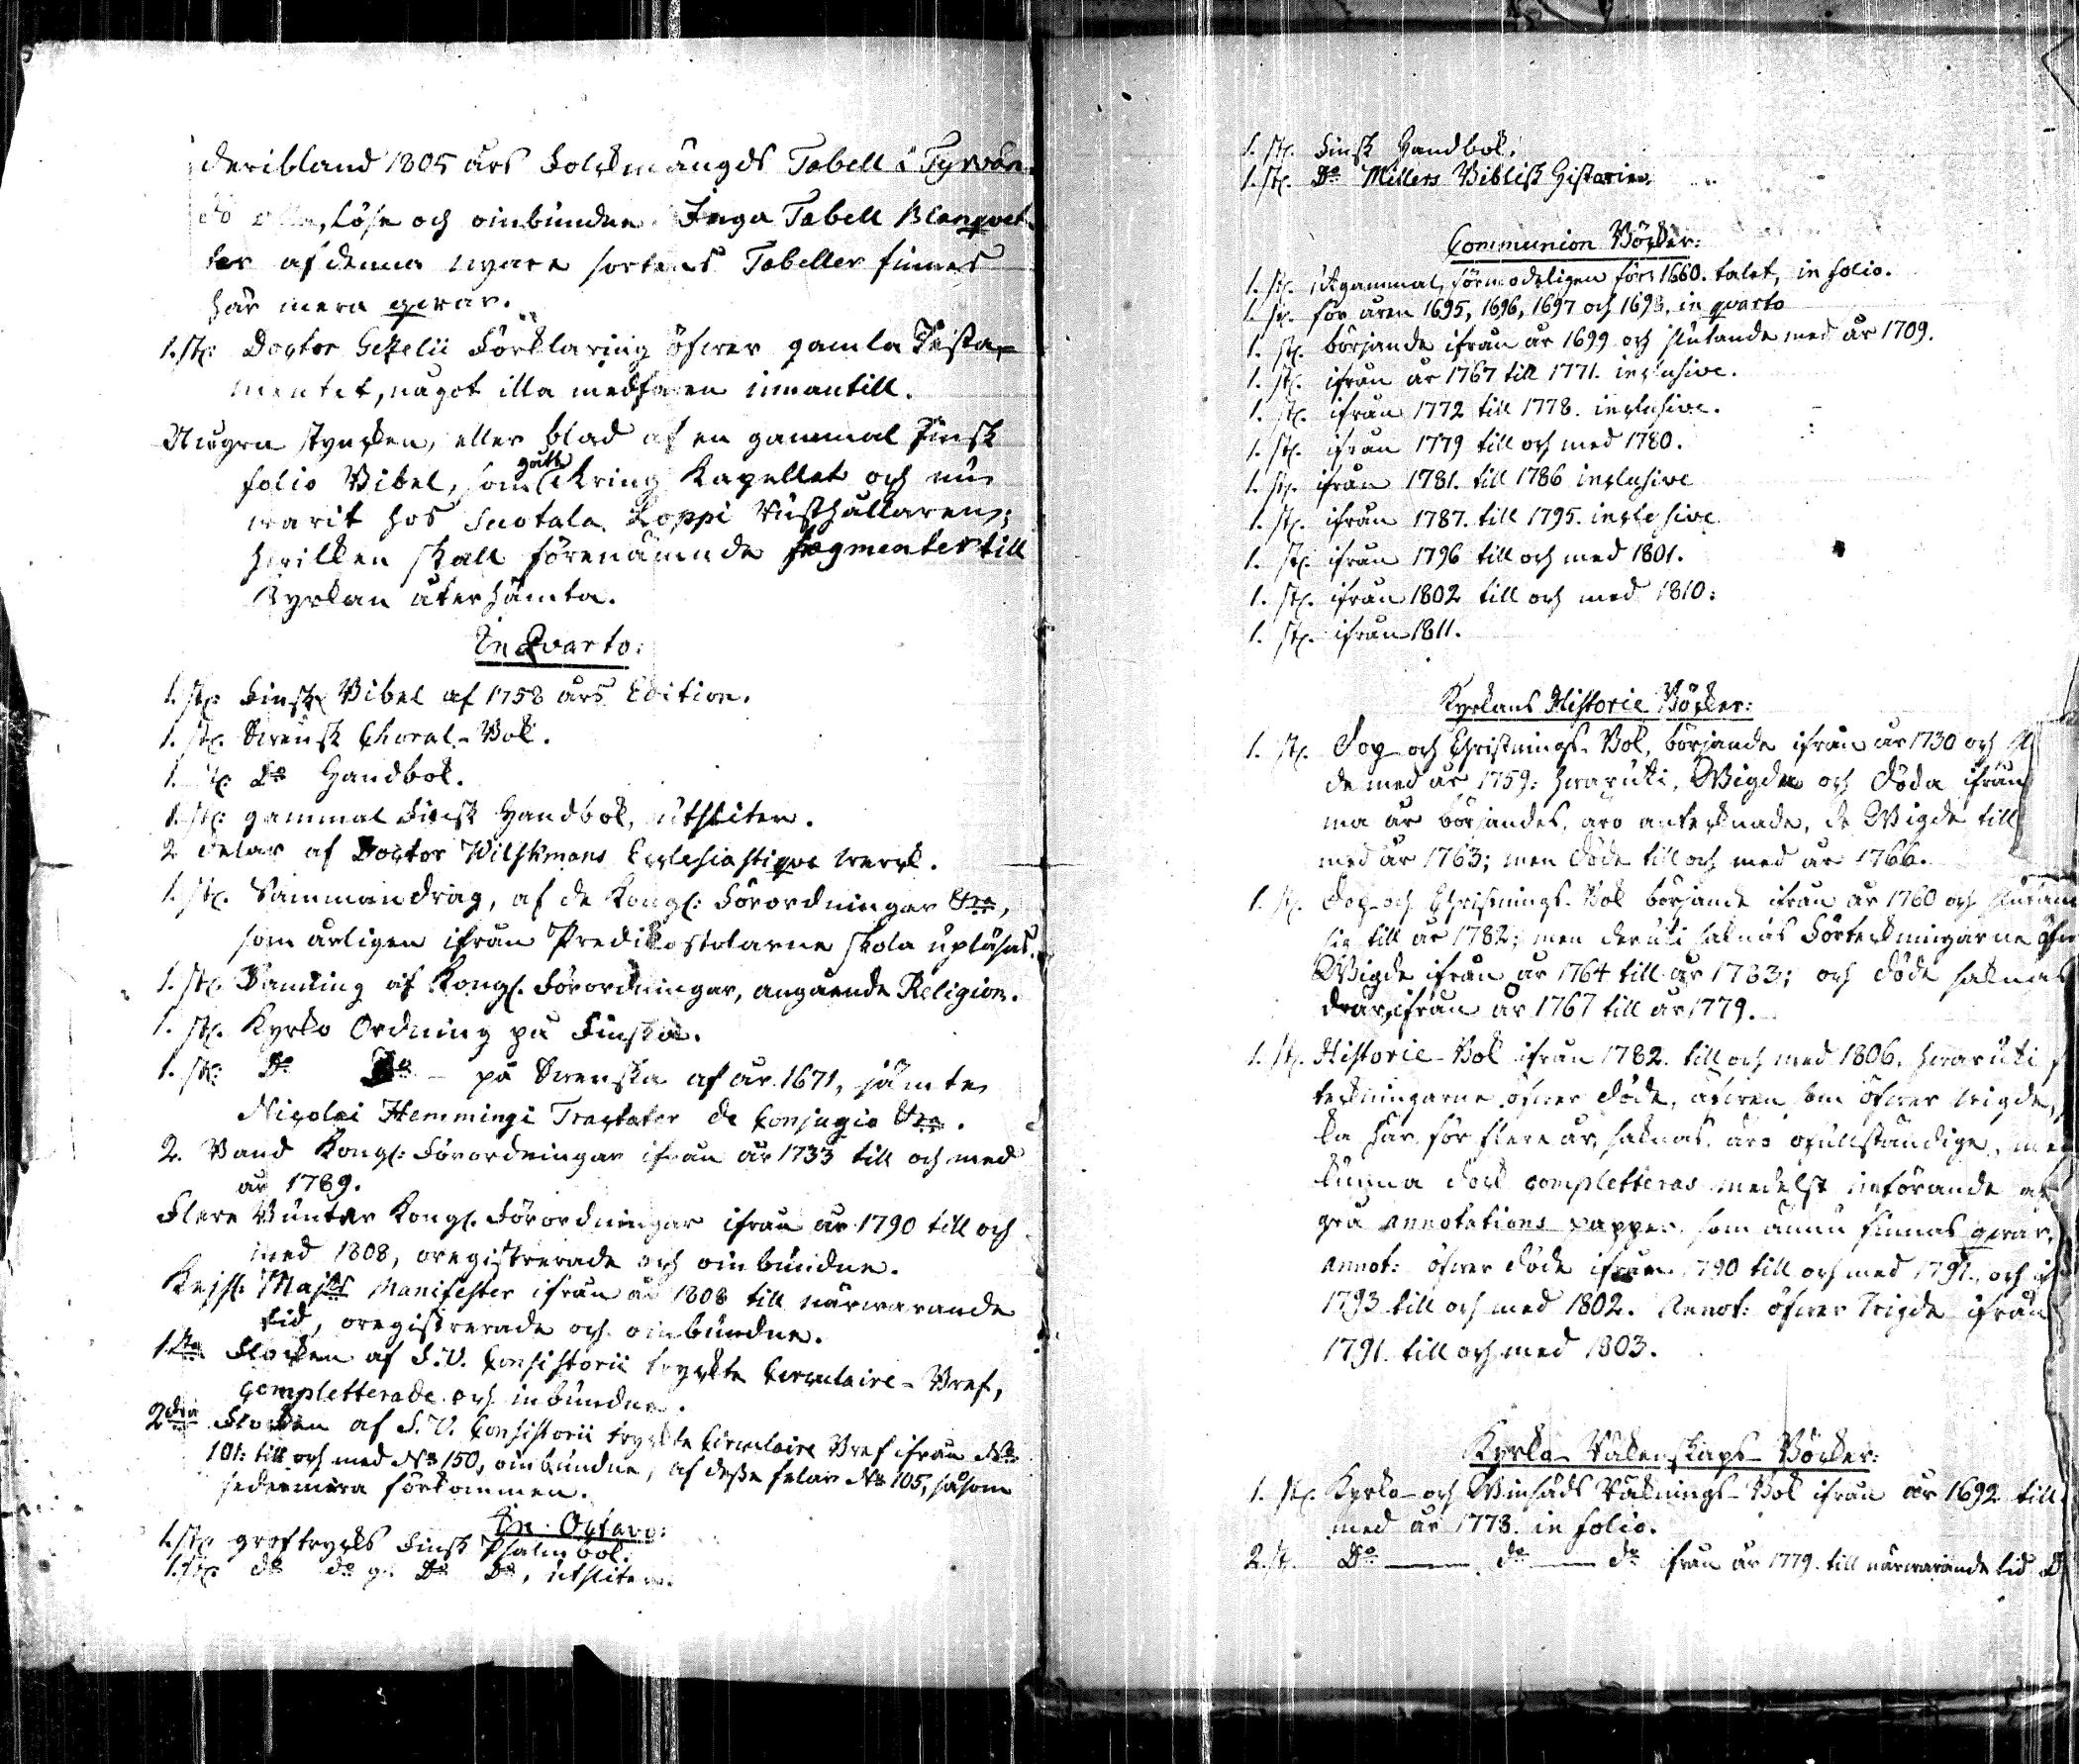 deribland 1805 års Folckmängds Tabell i Tyrvän-
do, löse och oinbundne. Inga Tabell Blanqvet-
ter af denna nyare sortens Tabeller finnes
här mera qvar.
1. st: Doctor Gezelii Förklaring öfwer gamla Testa-
mentet, något illa medfaren innantill.
Några stycken, eller blad af en gammal Finsk
folio Bibel, som gått kring Kapellet och nu
warit hos Suotala Loppi Rusthållaren;
hwilken skall förenämnde fragmenter till
Kyrkan återhämta.
In Qvarto:
1. st: Finsk Bibel af 1758 års Edition.
1. st. Svensk Choral-Bok.
1. st. Do Handbok.
1. st: gammal Finsk Handbok, utsliten.
2 delar af Doctor Wilskmans Ecclesiastique werck.
1. st. Sammandrag, af de Kongl: Förordningar &ra,
som årligen ifrån Predikostolarne skola upläsas.
1. st. Samling af Kongl. Förordningar, angående Religion.
1. st. Kyrko Ordning på Finska.
1. st: Do Do – på Swenska af år 1671, jämte
Nicolai Hemmingi Tractater de Conjugio &ra.
2. Band Kongl: Förordningar ifrån år 1733 till och med
år 1789.
Flere Buntar Kongl. Förordningar ifrån år 1790 till och
med 1808, oregistrerade och oinbundne.
Kejsl: Majts Manifester ifrån år 1808 till närwarande
tid, oregistrerade och oinbundne.
1sta Flocken af S.V. Consistorii tryckte Circulaire-Bref,
completterade och inbundne.
2dra Flocken af S.V. Consistorii tryckte Circulaire Bref ifrån No
101: till och med No 150, oinbundne, af desse felar No 105, såsom
sedermera förkommen.
In Octavo:
1. st. groftryckt Finsk Psalmbok.
1. st. do do Do Do, utsliten.
1. st. Finsk Handbok.
1. st. Do Millers Biblisk Historien.
Communion Böcker:
1. st. Utgammal, förmodeligen före 1660. talet, in folio.
1. st. för åren 1695, 1696, 1697 och 1698, in qvarto
1. st. börjande ifrån år 1699 och slutande med år 1709.
1. st. ifrån år 1767 till 1771. inclusive.
1. st. ifrån 1772 till 1778. inclusive.
1. st. ifrån 1779 till och med 1780.
1. st. ifrån 1781. till 1786 inclusive
1. st. ifrån 1787. till 1795. inclusive
1. st. ifrån 1796 till och med 1801.
1. st. ifrån 1802 till och med 1810:
1. st. ifrån 1811.
Kyrkans Historie Böcker:
1. st. Dop och Christnings-Bok, börjande ifrån år 1730 och
de med år 1759: hwaruti, Wigde och Döda ifrån
ma år börjandes, äro antecknade, de Wigde till
med år 1763; men döde till och med år 1766.
1. st. Dop och Christnings-Bok börjande ifrån år 1760 och slutan
sig till år 1782; men deruti saknas Förteckningarne öfwer
Wigde ifrån år 1764 till år 1783; och döde saknas
derär, ifrån år 1767 till år 1779.
1. st. Historie-Bok ifrån 1782. till och med 1806. hwaruti
teckningarne öfwer döde, äfwen som öfwer wigde,
ka här för flere år saknas, äro ofullständige, men
kunna dock completteras medelst införande af
gra annotations papper, som ännu finnas qvar,
annot: öfwer döde ifrån 1790 till och med 1791, och
1793 till och med 1802. Annot: öfwer wigde ifrån
1791. till och med 1803.
Kyrko Räkenskaps-Böcker:
1. st. Kyrko- och Winhåds Räknings-Bok ifrån år 1692 till
med år 1778. in folio.
2. st. Do do do ifrån år 1779. till närwarande tid